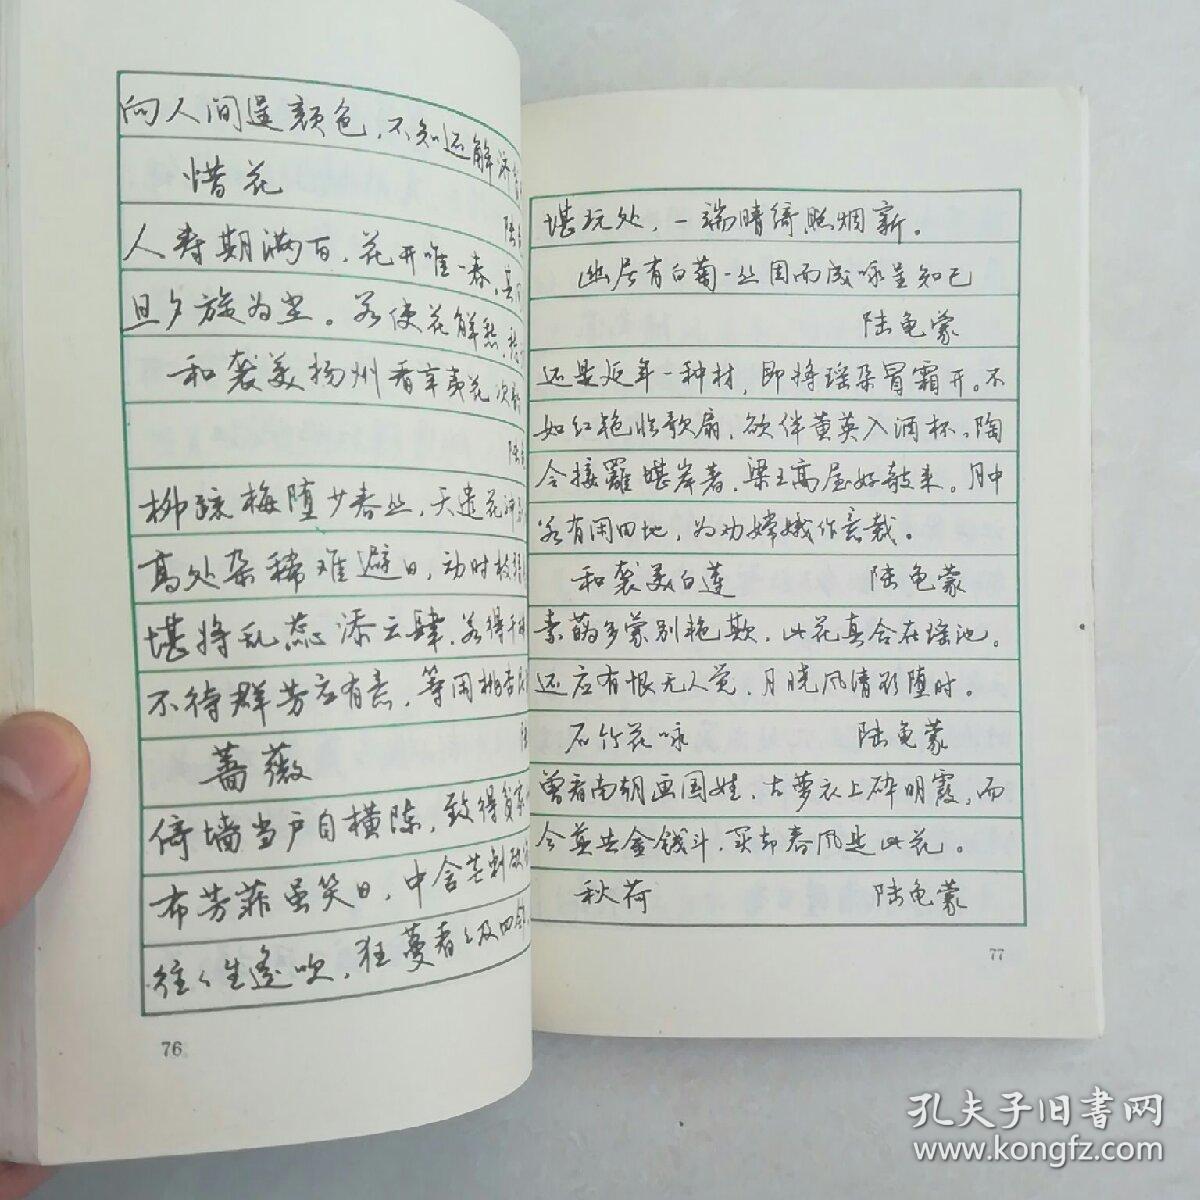 向人间逞颜色,不知还解济
惜花
陆
人寿期满百,花开唯一春,其间
旦夕旋为尘。若使花解愁,愁
和袭美扬州看辛夷花次韵
陆
柳疏梅堕少春丛,天遣花神别
高处朵稀难避日,动时枝弱
堪将乱蕊添云肆,若得千株
不待群芳应有意,等闲桃杏
陆
蔷薇
倚墙当户自横陈,致得贫家
布芳菲虽笑日,中含芒刺欲
往々生遥吹,狂蔓看々及四邻
76
堪玩处,一端晴绮照烟新。
幽居有白菊一丛因而成咏呈知己
陆龟蒙
还是延年一种材,即将瑶朵冒霜开。不
如红艳临歌扇,欲伴黄英入酒杯。陶
令接䍦堪岸著,梁王高屋好欹来。月中
若有闲田地,为劝嫦娥作意栽。
和袭美白莲 陆龟蒙
素蘤多蒙别艳欺,此花真合在瑶池。
还应有恨无人觉,月晓风清欲堕时。
石竹花咏 陆龟蒙
曾看南朝画国娃,古萝衣上碎明霞,而
今莫共金钱斗,买却春风是此花。
秋荷 陆龟蒙
77
孔夫子旧书网
www.kongfz.com